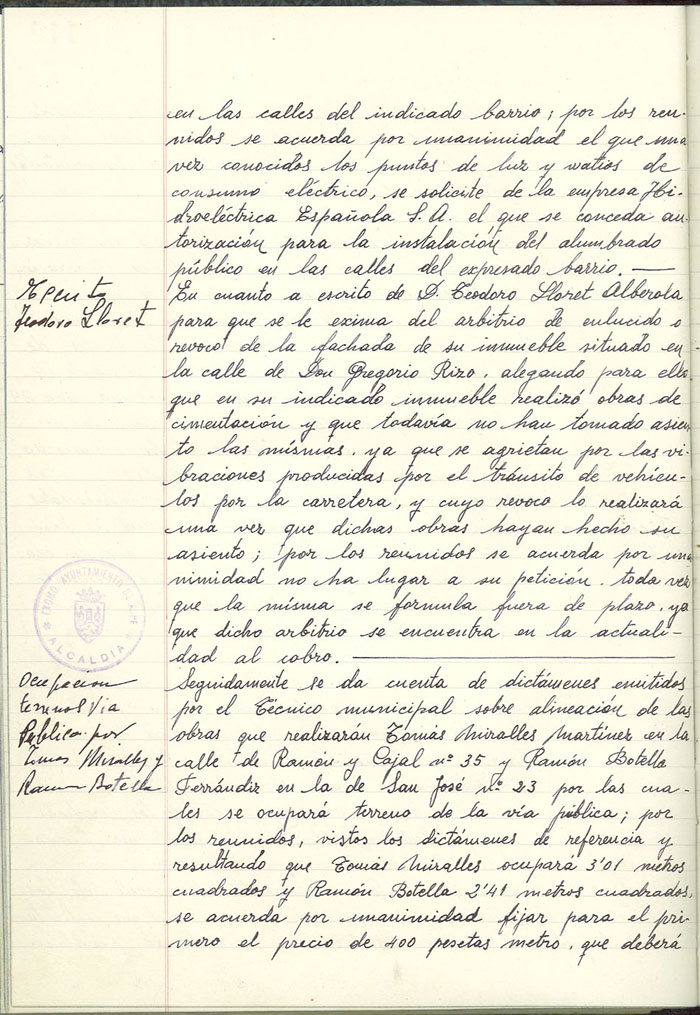 en las calles del indicado barrio; por los reu-
nidos se acuerda por unanimidad el que una
vez conocidos los puntos de luz y watios de
consumo eléctrico, se solicite de la empresa Hi-
droeléctrica Española S.A. el que se conceda au-
torización para la instalación del alumbrado
público en las calles del expresado barrio. —
Escrito
Teodoro Lloret
En cuanto a escrito de D. Teodoro Lloret Alberola
para que se le exima del arbitrio de enlucido o
revoco de la fachada de su inmueble situado en
la calle de Don Gregorio Rizo, alegando para ello
que en su indicado inmueble realizó obras de
cimentación y que todavía no han tomado asien
to las mismas, ya que se agrietan por las vi-
braciones producidas por el tránsito de vehícu-
los por la carretera, y cuyo revoco lo realizará
una vez que dichas obras hayan hecho su
asiento; por los reunidos se acuerda por una
nimidad no ha lugar a su petición, toda vez
que la misma se formula fuera de plazo, ya
que dicho arbitrio se encuentra en la actuali-
dad al cobro. —
AYUNTAMIENTO DE
ALCALDIA
Ocupacion
terrenos Via
Publica por
Tomas Miralles y
Ramon Botella
Seguidamente se da cuenta de dictámenes emitidos
por el Técnico municipal sobre alineación de las
obras que realizarán Tomás Miralles Martínez en la
calle de Ramón y Cajal nº 35 y Ramón Botella
Ferrándiz en la de San José nº 23 por las cua-
les se ocupará terreno de la vía pública; por
los reunidos, vistos los dictámenes de referencia y
resultando que Tomás Miralles ocupará 3'01 metros
cuadrados y Ramón Botella 2'41 metros cuadrados,
se acuerda por unanimidad fijar para el pri-
mero el precio de 400 pesetas metro, que deberá